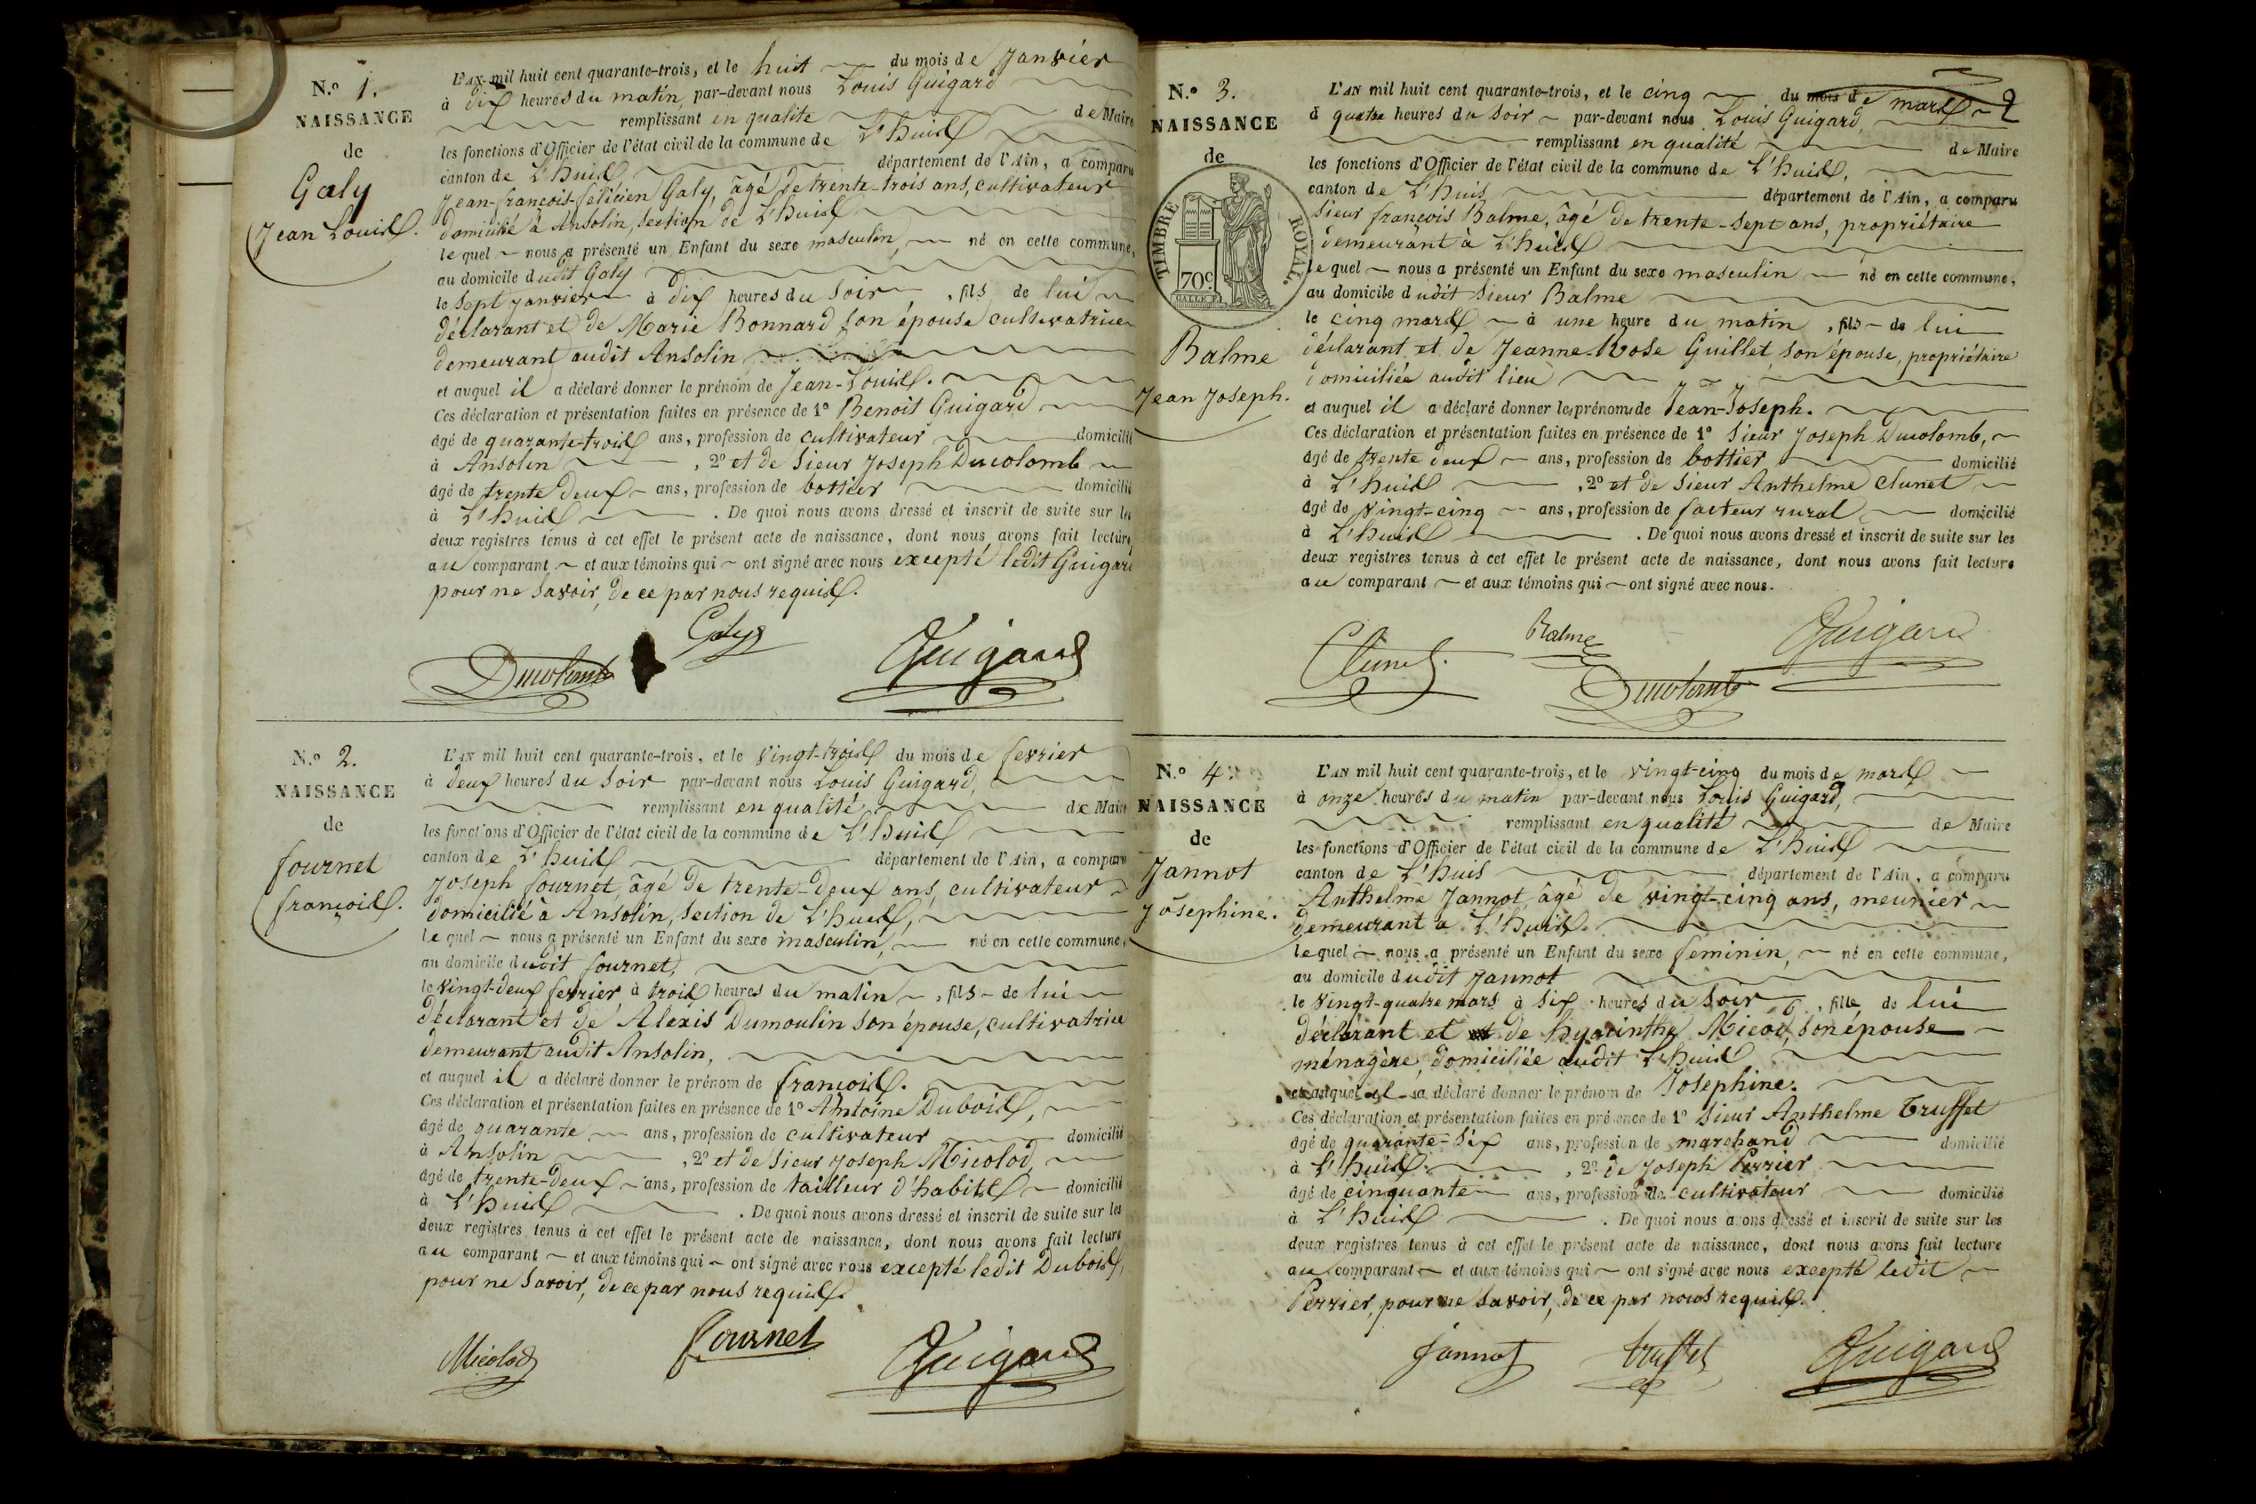 N.° 1.
NAISSANCE
de
Galy
Jean Louis.
L'AN mil huit cent quarante-trois, et le huit du mois de Janvier
à dix heures du matin, par-devant nous Louis Guigard
remplissant en qualité de Maire
les fonctions d'Officier de l'état civil de la commune de L'huis
canton de L'huis, département de l'Ain, a comparu
Jean-françois-félicien Galy, âgé de trente-trois ans, cultivateur
domicilié à Ansolin, section de L'huis
lequel nous a présenté un Enfant du sexe masculin, né en cette commune,
au domicile dudit Galy
le sept janvier à dix heures du soir, fils de lui
déclarant et de Marie Bonnard son épouse cultivatrice
demeurant audit Ansolin
et auquel il a déclaré donner le prénom de Jean-Louis.
Ces déclaration et présentation faites en présence de 1° Benoit Guigard
âgé de quarante-trois ans, profession de cultivateur domicilié
à Ansolin, 2° et de Sieur Joseph Ducolomb
âgé de trente deux ans, profession de bottier domicilié
à L'huis. De quoi nous avons dressé et inscrit de suite sur les
deux registres tenus à cet effet le présent acte de naissance, dont nous avons fait lecture
au comparant et aux témoins qui ont signé avec nous excepté ledit Guigard
pour ne savoir, de ce par nous requis.
Ducolomb Galy Guigard
N.° 2.
NAISSANCE
de
fournet
françois.
L'AN mil huit cent quarante-trois, et le vingt-trois du mois de fevrier
à deux heures du soir par-devant nous Louis Guigard,
remplissant en qualité de Maire
les fonctions d'Officier de l'état civil de la commune de L'huis
canton de L'huis département de l'Ain, a comparu
Joseph fournet, âgé de trente-deux ans, cultivateur
domicilié à Ansolin, section de L'huis,
lequel nous a présenté un Enfant du sexe masculin, né en cette commune,
au domicile dudit fournet,
le vingt-deux fevrier, à trois heures du matin, fils de lui
déclarant et de Alexis Dumoulin son épouse, cultivatrice
demeurant audit Ansolin,
et auquel il a déclaré donner le prénom de françois.
Ces déclaration et présentation faites en présence de 1° Antoine Dubois,
âgé de quarante ans, profession de cultivateur domicilié
à Ansolin, 2° et de Sieur Joseph Micolod
âgé de trente-deux ans, profession de tailleur d'habits domicilié
à L'huis. De quoi nous avons dressé et inscrit de suite sur les
deux registres tenus à cet effet le présent acte de naissance, dont nous avons fait lecture
au comparant et aux témoins qui ont signé avec nous excepté ledit Dubois,
pour ne savoir, de ce par nous requis.
Micolod fournet Guigard
2
N.° 3.
NAISSANCE
de
TIMBRE ROYAL.
70c
Balme
Jean Joseph.
L'AN mil huit cent quarante-trois, et le cinq du mois de mars
à quatre heures du soir par-devant nous Louis Guigard,
remplissant en qualité de Maire
les fonctions d'Officier de l'état civil de la commune de L'huis,
canton de L'huis département de l'Ain, a comparu
Sieur françois Balme, âgé de trente-sept ans, propriétaire
demeurant à L'huis
lequel nous a présenté un Enfant du sexe masculin né en cette commune,
au domicile dudit Sieur Balme
le cinq mars à une heure du matin, fils de lui
déclarant et de Jeanne-Rose Guillet, son épouse, propriétaire
domiciliée audit lieu
et auquel il a déclaré donner les prénoms de Jean-Joseph.
Ces déclaration et présentation faites en présence de 1° Sieur Joseph Ducolomb,
âgé de trente deux ans, profession de bottier domicilié
à L'huis, 2° et de Sieur Anthelme Clunet
âgé de vingt-cinq ans, profession de facteur rural domicilié
à L'huis. De quoi nous avons dressé et inscrit de suite sur les
deux registres tenus à cet effet le présent acte de naissance, dont nous avons fait lecture
au comparant et aux témoins qui ont signé avec nous.
Clunet Balme Ducolomb Guigard
N.° 4
NAISSANCE
de
Jannot
Joséphine.
L'AN mil huit cent quarante-trois, et le vingt-cinq du mois de mars
à onze heures du matin par-devant nous Louis Guigard,
remplissant en qualité de Maire
les fonctions d'Officier de l'état civil de la commune de L'huis
canton de L'huis département de l'Ain, a comparu
Anthelme Jannot, âgé de vingt-cinq ans, meunier
demeurant à L'huis.
lequel nous a présenté un Enfant du sexe feminin, né en cette commune,
au domicile dudit Jannot
le vingt-quatre mars à six heures du soir, fille de lui
déclarant et de hyacinthe Micod, son épouse
ménagère, domiciliée audit L'huis
et auquel il a déclaré donner le prénom de Josephine.
Ces déclaration et présentation faites en présence de 1° Sieur Anthelme Truffet
âgé de quarante-six ans, profession de marchand domicilié
à L'huis, 2° de Joseph Perrier
âgé de cinquante ans, profession de cultivateur domicilié
à L'huis. De quoi nous avons dressé et inscrit de suite sur les
deux registres tenus à cet effet le présent acte de naissance, dont nous avons fait lecture
au comparant et aux témoins qui ont signé avec nous excepté ledit
Perrier, pour ne savoir, de ce par nous requis.
Jannot truffet Guigard